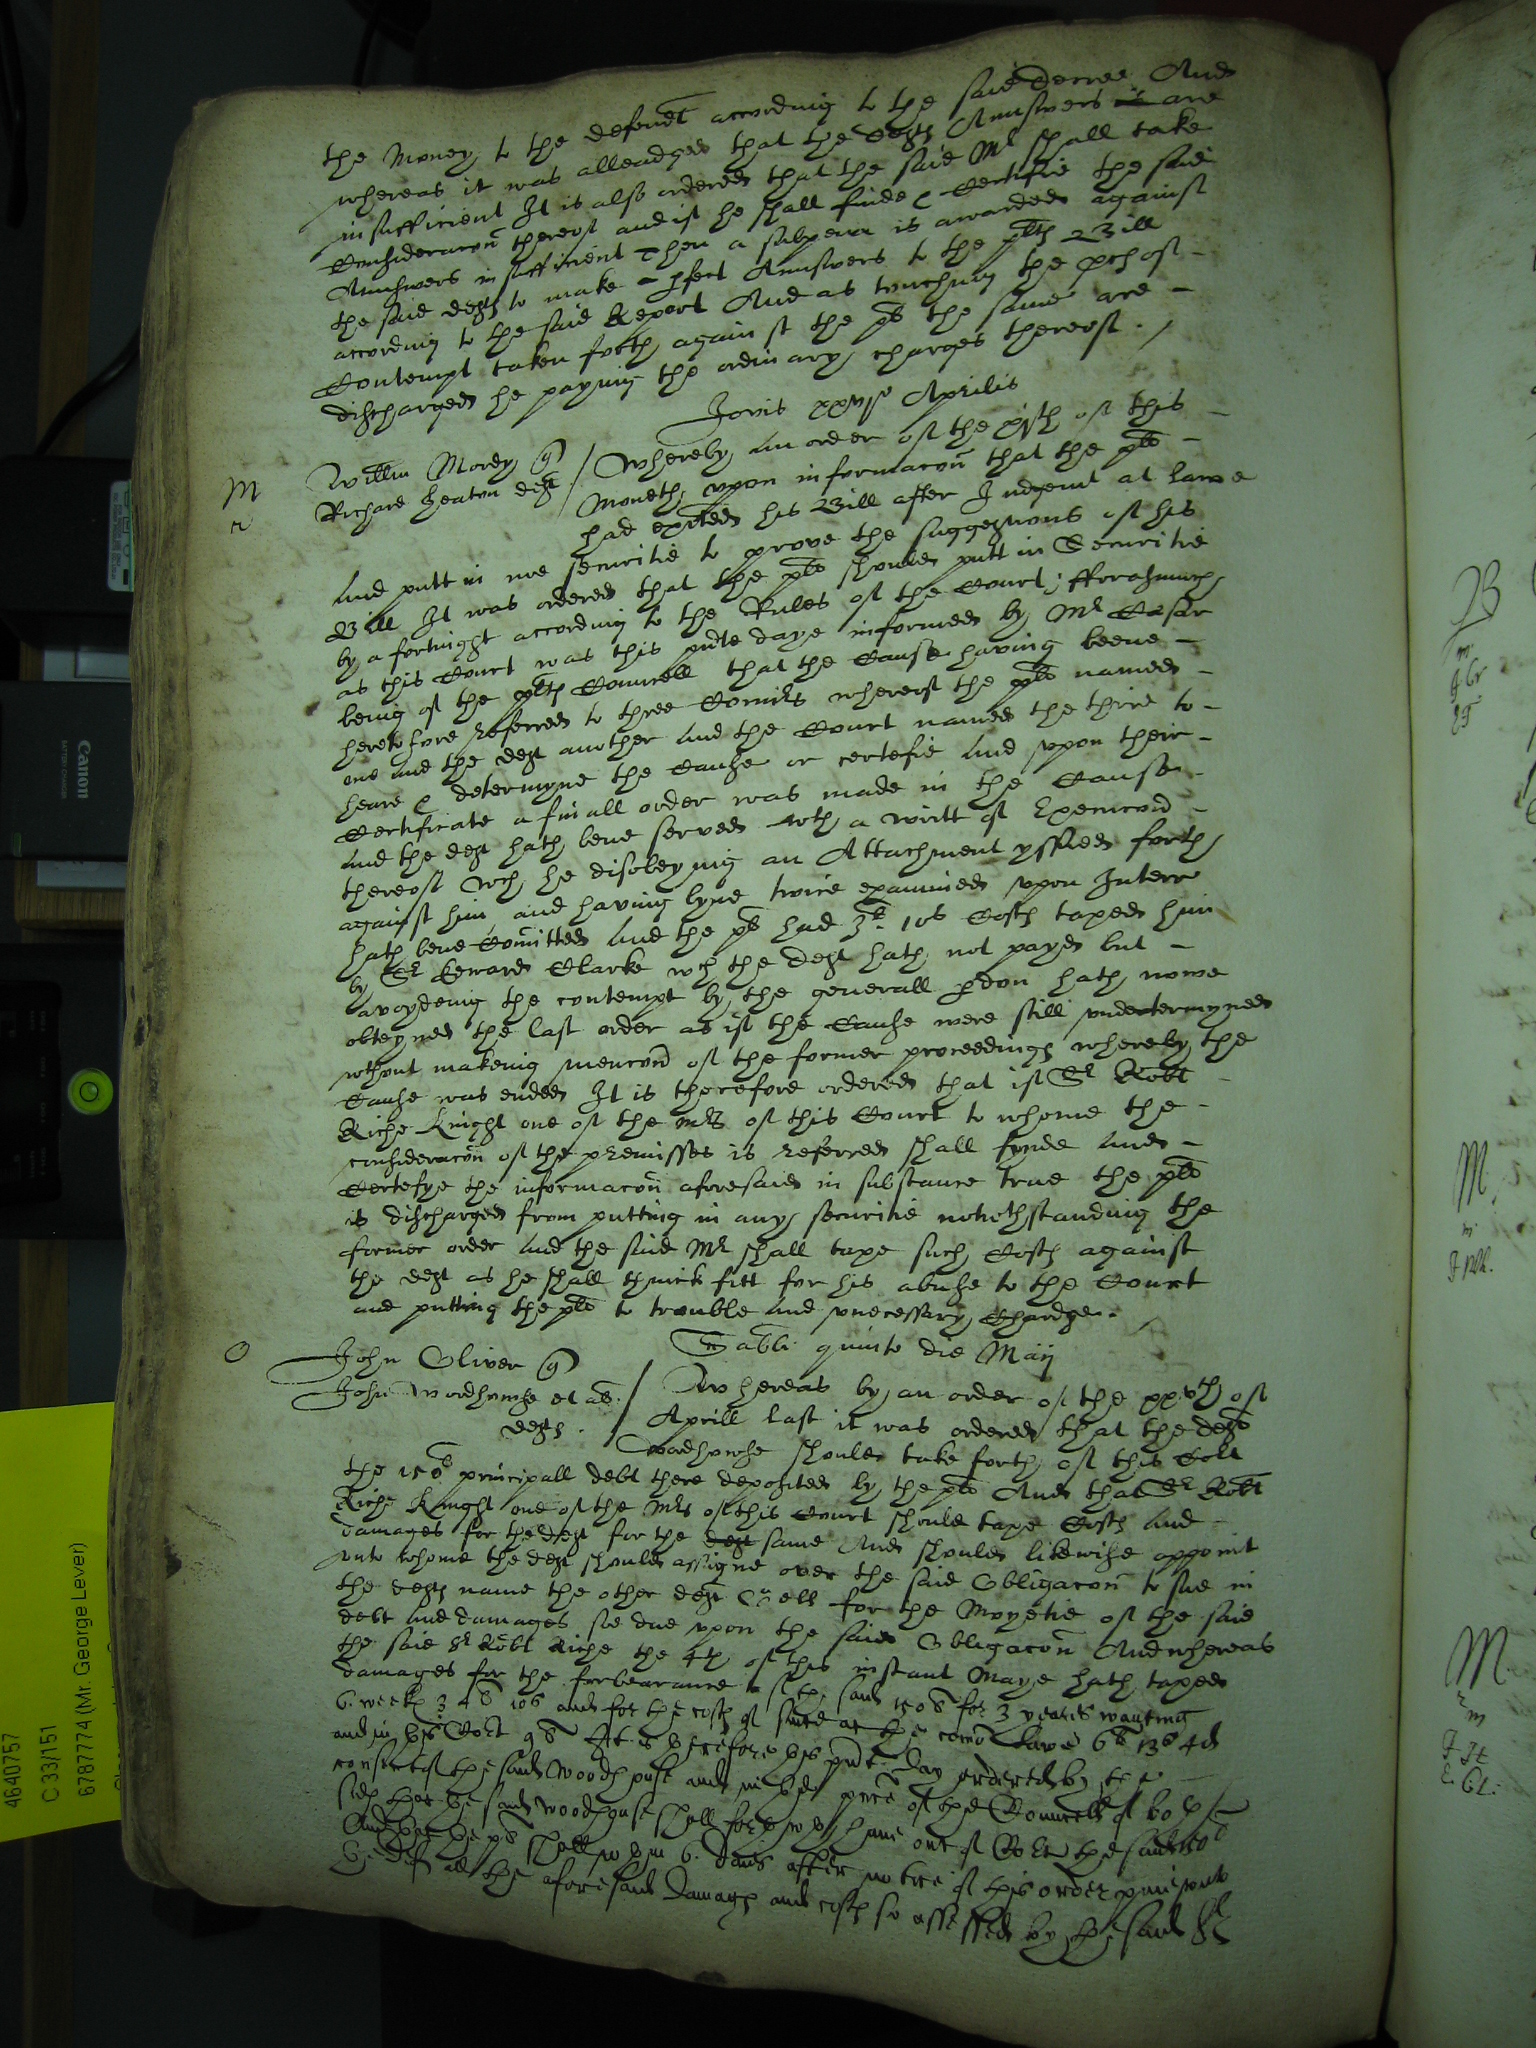 the Money to the defend^t according to the said decree And
whereas it was alleadged that the def^tes Answers is are
insufficient It is also ordered that the said M^r shall take
Consideracon thereof and if he shall finde & Certifie the said
Aunswers insufficient Then a subpena is awarded against
the said def^tes to make pfect Answers to the pl^tes Bill
according to the said Report And as touching the pces of
Contempt taken forth against the pl the same are
discharged he paying the ordinary charges thereof.
Jovis xxvj^o Aprilis
M
r
Willm Mordy q
Richard Heaton def^t
Whereby an order of the xj^th of this
Moneth upon informacon that the pl
had exhited his Bill after Judgemt at lawe
And putt in noe securitie to prove the suggestions of his
Bill It was ordered that the pl should putt in Securitie
by a fortnight according to the Rules of the Court; fforasmuch
as this Court was this pnte daye informed by M^r Cesar
being of the pl^tes Councell that the Cause having beene
heretofore referred to three Comrs whereof the pl named
one and the def^t another and the Court named the third to
heare & determyne the Cause or certefie And upon their
Certificate a finall order was made in the Cause
And the def^t hath bene served wth a writt of Execucon
thereof Wch he disobeying an Attachment yssued forth
against him and having byne twice examined upon Interr
hath bene Comitted And the pl had 3^l 10^s Costes taxed him
by S^r Edward Clarke wch the def^t hath not payed but
avoydeing the contempt by the generall pdon hath nowe
obteyned the last order as if the Cause were still undetermyned
without makeing mencon of the former proceedinges whereby the
Cause was ended It is therefore ordered that if S^r Robt
Riche Knight one of the m^rs of this Court to whome the
consideracon of the premisses is referred shall fynde and
Certefye the informacon aforesaid in substance true the pl
is discharged from putting in any securitie notwthstanding the
former order And the said M^r shall taxe such Costes against
the def^t as he shall thinck fitt for his abuse to the Court
and putting the pl to trouble and unecessary Chardge.
Sabbi quinto die Maij
O
John Oliver q
John Wordhowse et al.
def^tes.
Whereas by an order of the xxvth of
Aprill last it was ordered that the def^t
Wordhowse should take forth of this Co^rt
the 150^l principall debt there deposited by the pl And that S^r Robt
Riche Knight one of the M^rs of this Court should taxe Costes and
damages for the def^t for the def^t same And should likewise appoint
unto whome the def^t should assigne over the said Obligacon to sue in
the def^tes name the other def^t for the Moyetie of the said
debt and damages soe due upon the said Obligacon And whereas
the said S^r Robt Riche the 4th of this instant Maye hath taxed
damages for the forbearance of the said 150^l for 3 yeares wanting
6 weekes 34^l 10^s and for the costes of suite at the comon lawe 6^l 13^s 4^d
and in this Co^rt 9^l It is therefore this pnte day ordered by the
consent of the said Woodhouse and in the pnce of the Councell of both
sides that the said Woodhouse shall forthwth have out of Co^rt the said 150^l
And that the pl shall wthin 6 daies after notice of this order paie unto
the def^t all the aforesaid damages and costes so assessed by the said S^r
4640757
C 33/151
6787774 (Mr. George Lever)
Canon
BATTERY CHARGER
M
M